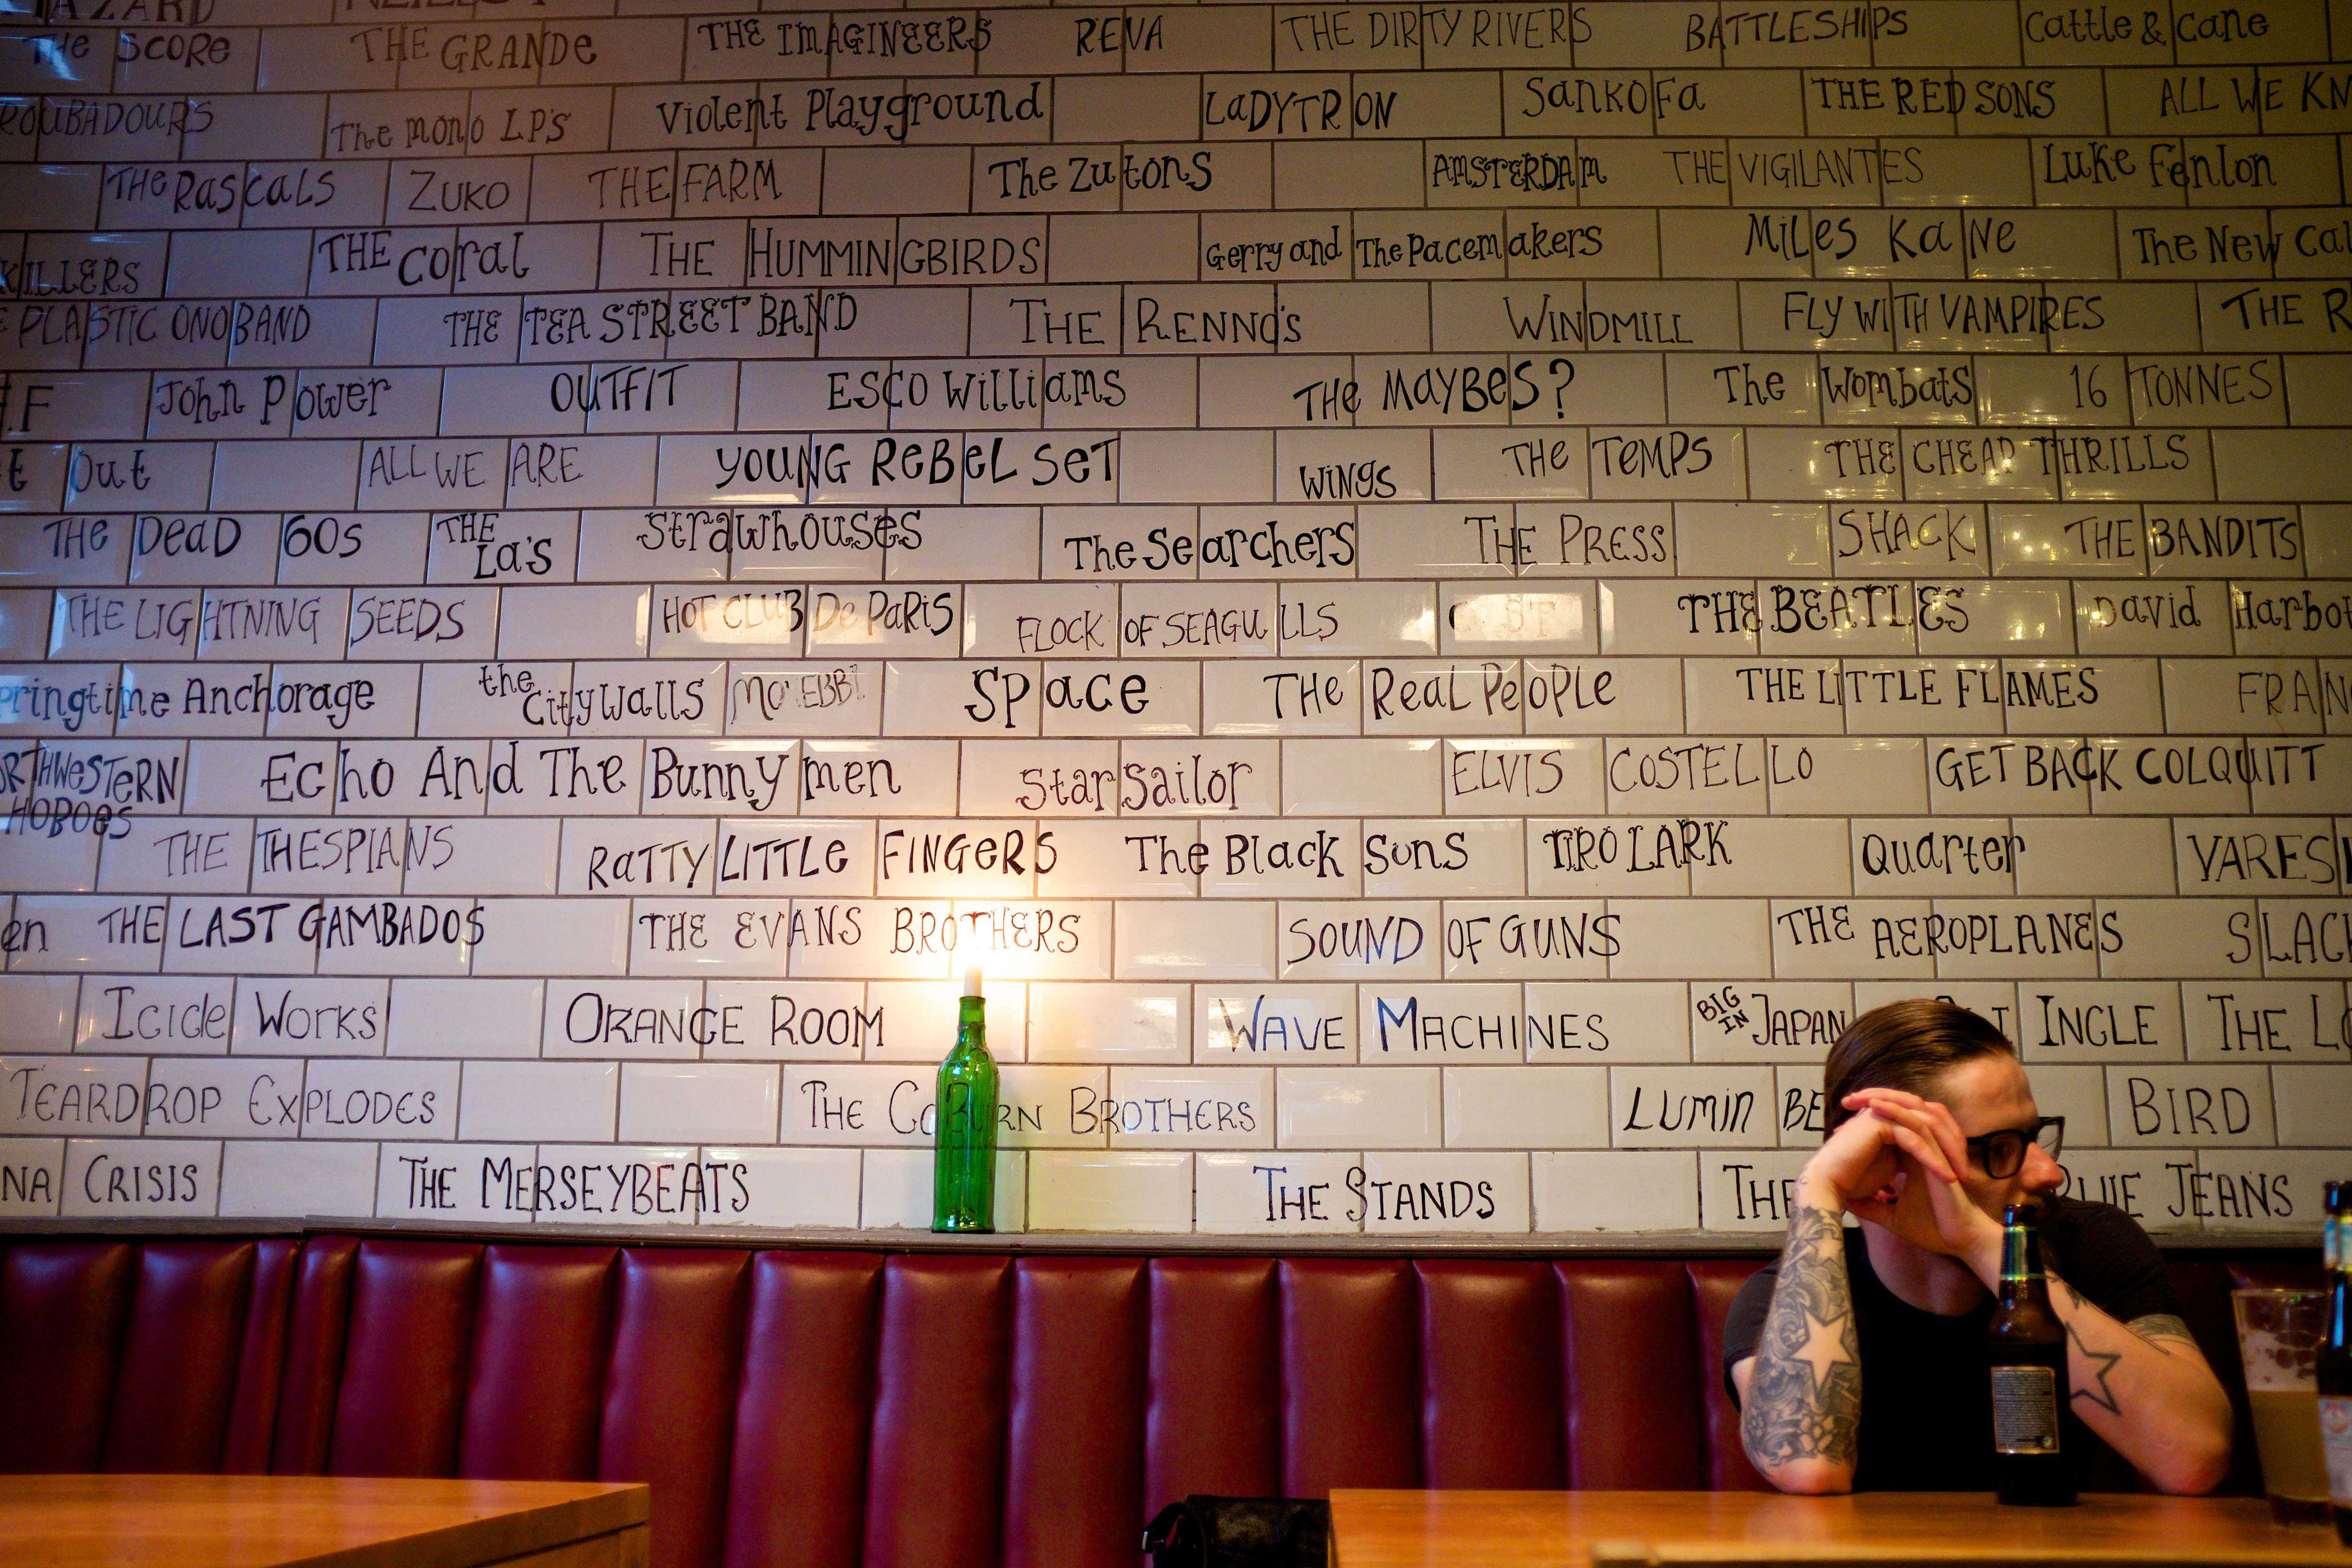 HAZARD
The Score THE GRANDE THE IMAGINEERS REVA THE DIRTY RIVERS BATTLESHIPS Cattle & Cane
ROUBADOURS The mono LP'S Violent Playground LADYTRON SANKOFA THE RED SONS ALL WE KN
THE RASCALS ZUKO THE FARM The Zutons AMSTERDAM THE VIGILANTES Luke Fenlon
KILLERS THE CORAL THE HUMMINGBIRDS Gerry and The Pacemakers MiLes KaNe The New Cal
PLASTIC ONO BAND THE TEA STREET BAND THE RENNO'S WINDMILL FLY WITH VAMPIRES THE R
.F John Power OUTFIT ESCO Williams THE MAYBES? The Wombats 16 TONNES
t Out ALL WE ARE YOUNG REBEL SET WINGS THE TEMPS THE CHEAP THRILLS
THE DEAD 60s THE La's Strawhouses The Searchers THE PRESS SHACK THE BANDITS
THE LIGHTNING SEEDS HOT CLUB De PARIS FLOCK OF SEAGULLS THE BEATLES David Harbo
pringtime Anchorage the City Walls Space THE Real People THE LITTLE FLAMES FRAN
RTHWESTERN HOBOES Echo And The Bunnymen StarSailor ELVIS COSTELLO GET BACK COLQUITT
THE THESPIANS RATTY LITTLE FINGERS The Black Suns TIRO LARK Quarter VARES
en THE LAST GAMBADOS THE EVANS BROTHERS SOUND OF GUNS THE AEROPLANES SLAC
Icicle Works ORANGE ROOM WAVE MACHINES BIG IN JAPAN INGLE THE LO
TEARDROP EXPLODES THE COBURN BROTHERS LUMIN BE BIRD
NA CRISIS THE MERSEYBEATS THE STANDS THE BLUE JEANS